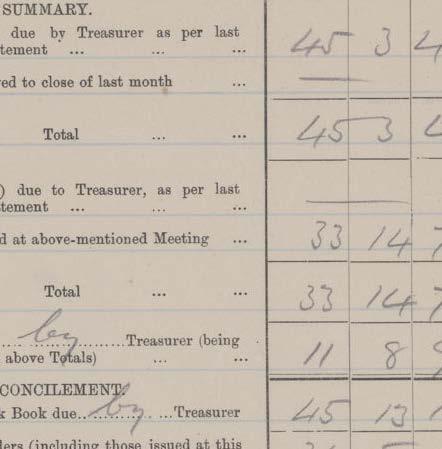 SUMMARY.
due by Treasurer as per last
tement ... ... ... 45 3
ved to close of last month ... —
Total ... ... 45 3
) due to Treasurer, as per last
tement ... ... ... —
d at above-mentioned Meeting ... 33 14 7
Total ... ... 33 14 7
by Treasurer (being
above Totals) ... ... 11 8
CONCILEMENT.
k Book due by Treasurer 45 13 1
ders (including those issued at this